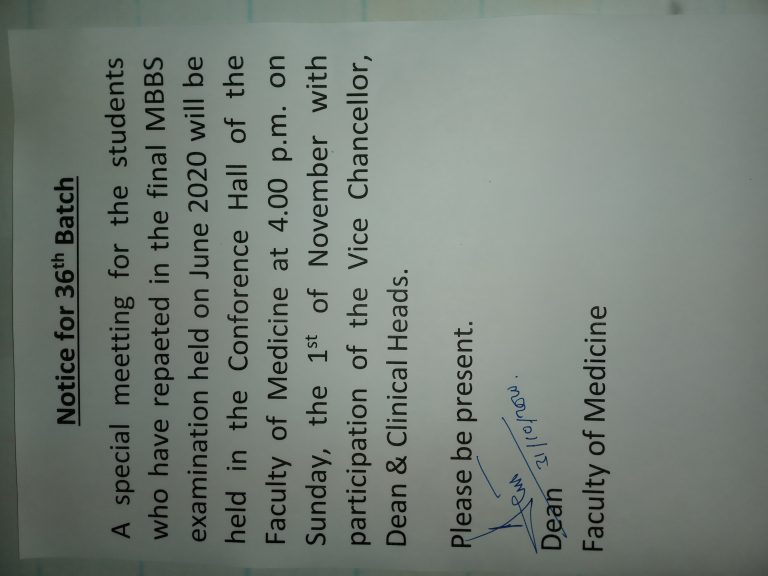 Notice for 36th Batch
A special meetting for the students
who have repaeted in the final MBBS
examination held on June 2020 will be
held in the Conference Hall of the
Faculty of Medicine at 4.00 p.m. on
Sunday, the 1st of November with
participation of the Vice Chancellor,
Dean & Clinical Heads.
Please be present.
31/10/2020.
Dean
Faculty of Medicine